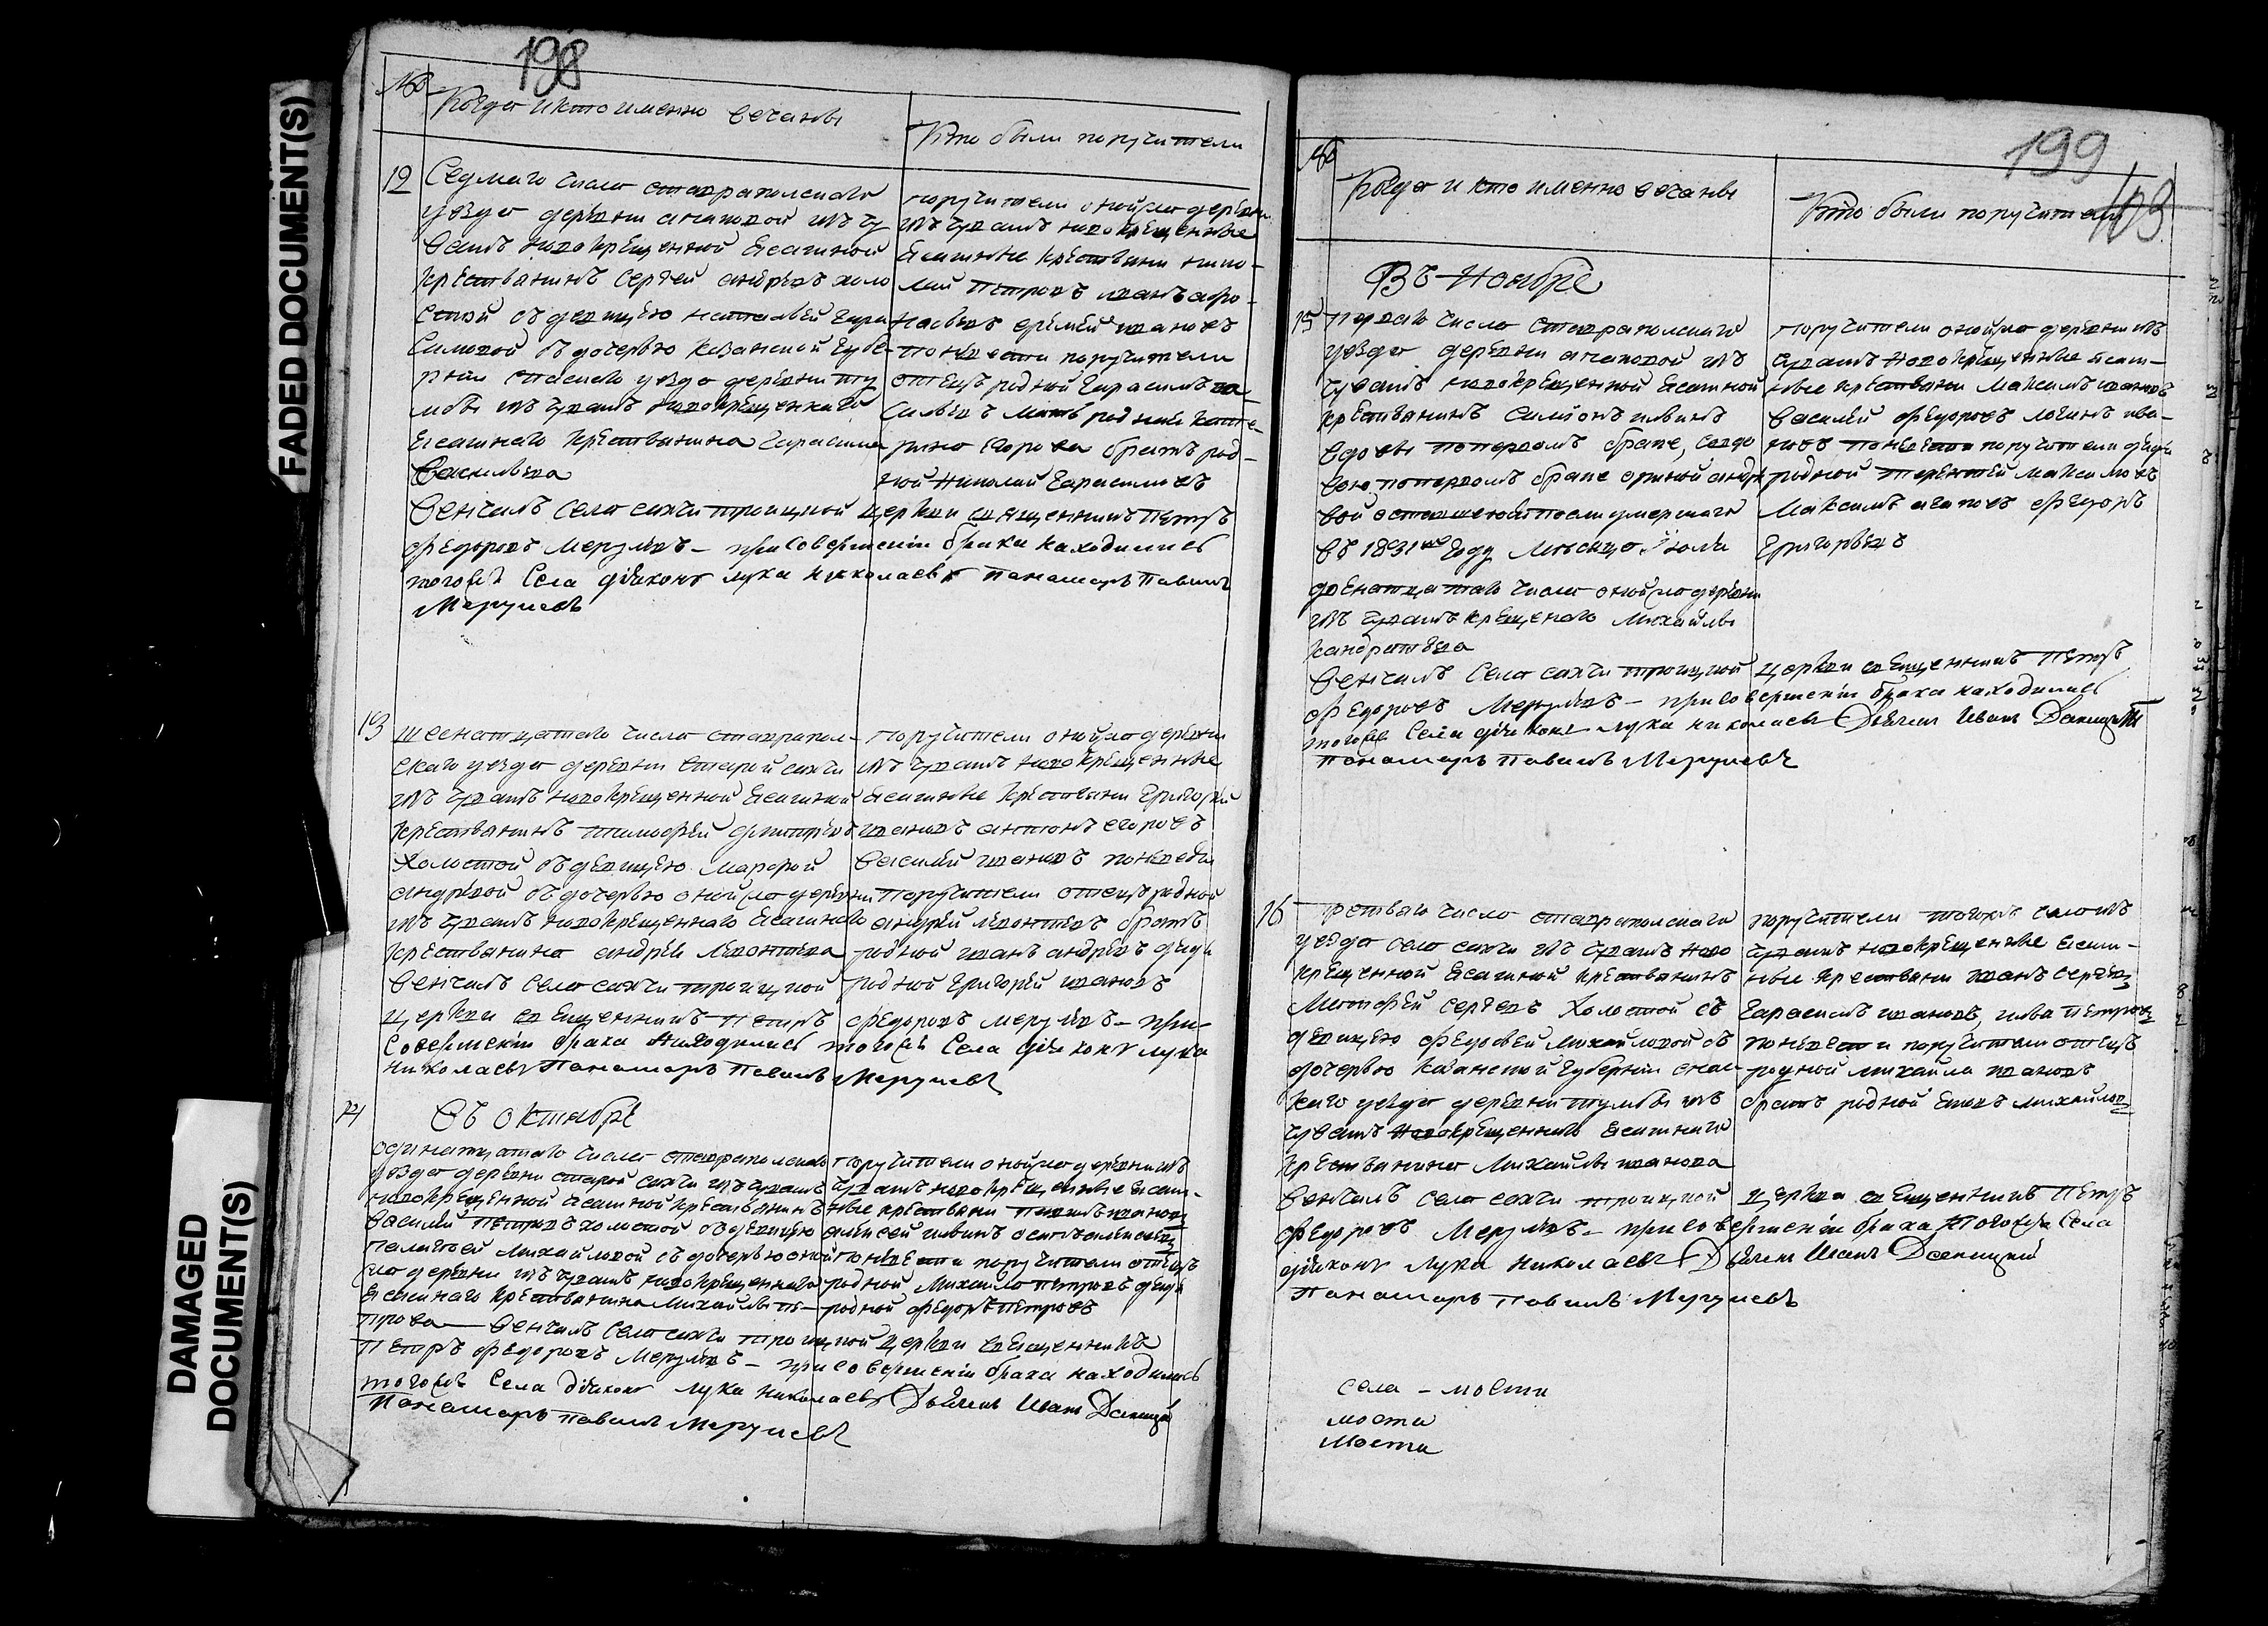 FADED DOCUMENT(S)
DAMAGED
DOCUMENT(S)
198
№
Когда и кто именно венчаны
Кто были поручители
12
Седмаго числа ставропольскаго
уезда деревни
вашъ новокрещенной ясашной
крестьянинъ Сергей андреевъ холо
стой съ девицею натальей Гера
симовой съ дочерью казанской губе
рнии спаскаго уезда деревни
изъ чувашъ новокрещеннаго
ясашнаго крестьянина Гарасима
Васильева
поручители онойже деревни
изъ чувашъ новокрещенные
ясашные крестьяни нико-
лай Петровъ иванъ афо-
насьевъ еремей ивановъ
по невести поручители
отецъ родной Гарасимъ ва-
сильевъ мать родная кате-
рина егорова братъ род-
ной Николай Гарасимовъ
Венчалъ села сахчи троицкой церкви священникъ Петръ
федоровъ Мерулевъ - при совершеніи брака находились
тогоже села діаконъ лука николаевъ панамарь Павелъ
Мерулевъ
13
шеснатцатаго числа ставрополь-
скаго уезда деревни старой сахчи
изъ чувашъ новокрещенной ясашной
крестьянинъ тимофей дмитріевъ
холостой съ девицею Марфой
андревой съ дочерью онойже деревни
изъ чувашъ новокрещеннаго ясашнаго
крестьянина андрея леонтева
поручители онойже деревни
изъ чувашъ новокрещенные
ясашные крестьяни Григорій
ивановъ антонъ егоровъ
василій ивановъ по невести
поручители отецъ родной
андрей леонтевъ братъ
родной иванъ андревъ дядя
родной Григорей ивановъ
Венчалъ села сахчи троицкой
церкви священникъ Петръ федоровъ мерулевъ - при
совершеніи брака находились тогоже села діаконъ лука
николаевъ Панамарь Павелъ Мерулевъ
14
Въ октябре
одинатцатаго числа ставропольскаго
уезда деревни старой сахчи изъ чувашъ
новокрещенной ясашной крестьянинъ
василий Петровъ холостой съ девицею
палагеей михайловой съ дочерью оной
же деревни изъ чувашъ новокрещеннаго
ясашнаго крестьянина михайлы пе-
трова
поручители онойже деревни изъ
чувашъ новокрещенные ясаш-
ные крестьяни
по невести поручители отецъ
родной Михайло Петровъ дядя
родной федоръ Петровъ
Венчалъ села сахчи троицкой церкви священникъ
Петръ федоровъ Мерулевъ - при совершеніи брака находились
тогоже села діаконъ лука николаевъ Дьячекъ Иванъ
Панамарь Павелъ Мерулевъ
199
№
Когда и кто именно венчаны
Кто были поручители
103
Въ Ноябре
15
перваго числа ставропольскаго
уезда деревни
чувашъ новокрещенной ясашной
крестьянинъ Симіонъ
вдовы по первомъ браке, со вдо
вою по первомъ браке ориной андре
вой оставшеюся после умершаго
въ 1831мъ году месяца Июля
двенатцатаго числа онойже деревни
изъ чувашъ крещенаго михайлы
кандратева
поручители онойже деревни изъ
чувашъ новокрещенные ясаш-
ные крестьяни Максимъ ивановъ
василей федоровъ логинъ ива-
новъ по невести поручители дядя
родной терентей максимовъ
Максимъ федоръ
Григорьевъ
Венчалъ села сахчи троицкой церкви священникъ Петръ
федоровъ Мерулевъ - при совершеніи брака находились
тогоже села діаконъ лука николаевъ Дьячекъ Иванъ
Панамарь Павелъ Мерулевъ
16
третьяго числа ставропольскаго
уезда села сахчи изъ чувашъ ново
крещенной ясашной крестьянинъ
Митрофей сергевъ холостой съ
девицею федосьей михайловой съ
дочерью казанской губерніи спас
каго уезда деревни изъ
чувашъ новокрещеннаго ясашнаго
крестьянина михайлы иванова
поручители тогожъ села изъ
чувашъ новокрещенные ясаш-
ные крестьяни иванъ сергевъ
Гарасимъ ивановъ, петровъ
по невести поручители отецъ
родной михайла ивановъ
братъ родной михайловъ
Венчалъ села сахчи троицкой церкви священникъ Петръ
федоровъ Мерулевъ - при совершеніи брака тогоже села
діаконъ лука николаевъ Дьячекъ Иванъ
Панамарь Павелъ Мерулевъ
села - моста
моста
моста